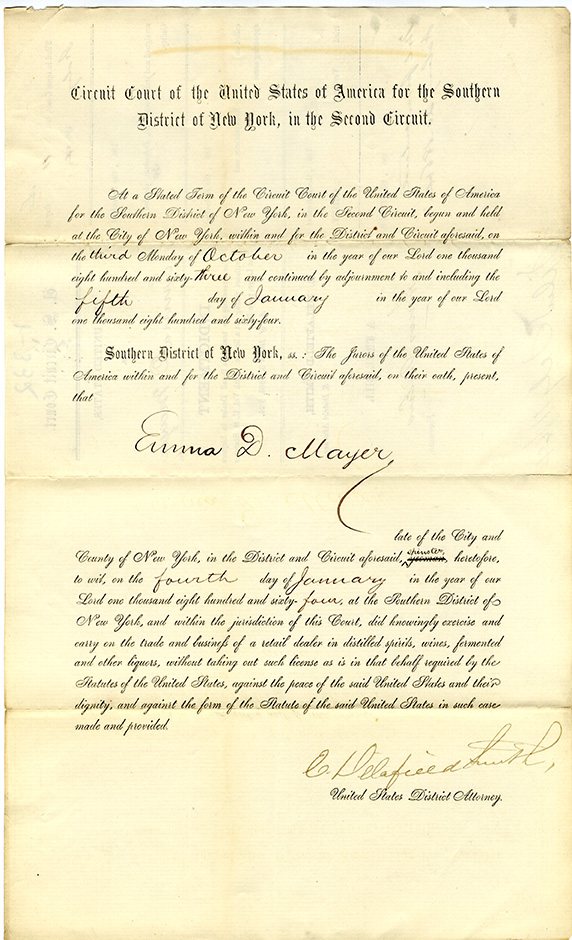 Circuit Court of the United States of America for the Southern
District of New York, in the Second Circuit.
At a Stated Term of the Circuit Court of the United States of America
for the Southern District of New York, in the Second Circuit, begun and held
at the City of New York, within and for the District and Circuit aforesaid, on
the third Monday of October in the year of our Lord one thousand
eight hundred and sixty-three and continued by adjournment to and including the
fifth day of January in the year of our Lord
one thousand eight hundred and sixty-four.
Southern District of New York, ss.: The Jurors of the United States of
America within and for the District and Circuit aforesaid, on their oath, present,
that
Emma D. Mayer
late of the City and
County of New York, in the District and Circuit aforesaid, heretofore,
to wit, on the fourth day of January in the year of our
Lord one thousand eight hundred and sixty-four, at the Southern District of
New York, and within the jurisdiction of this Court, did knowingly exercise and
carry on the trade and business of a retail dealer in distilled spirits, wines, fermented
and other liquors, without taking out such license as is in that behalf required by the
Statutes of the United States, against the peace of the said United States and their
dignity, and against the form of the Statute of the said United States in such case
made and provided.
E. Delafield Smith,
United States District Attorney.